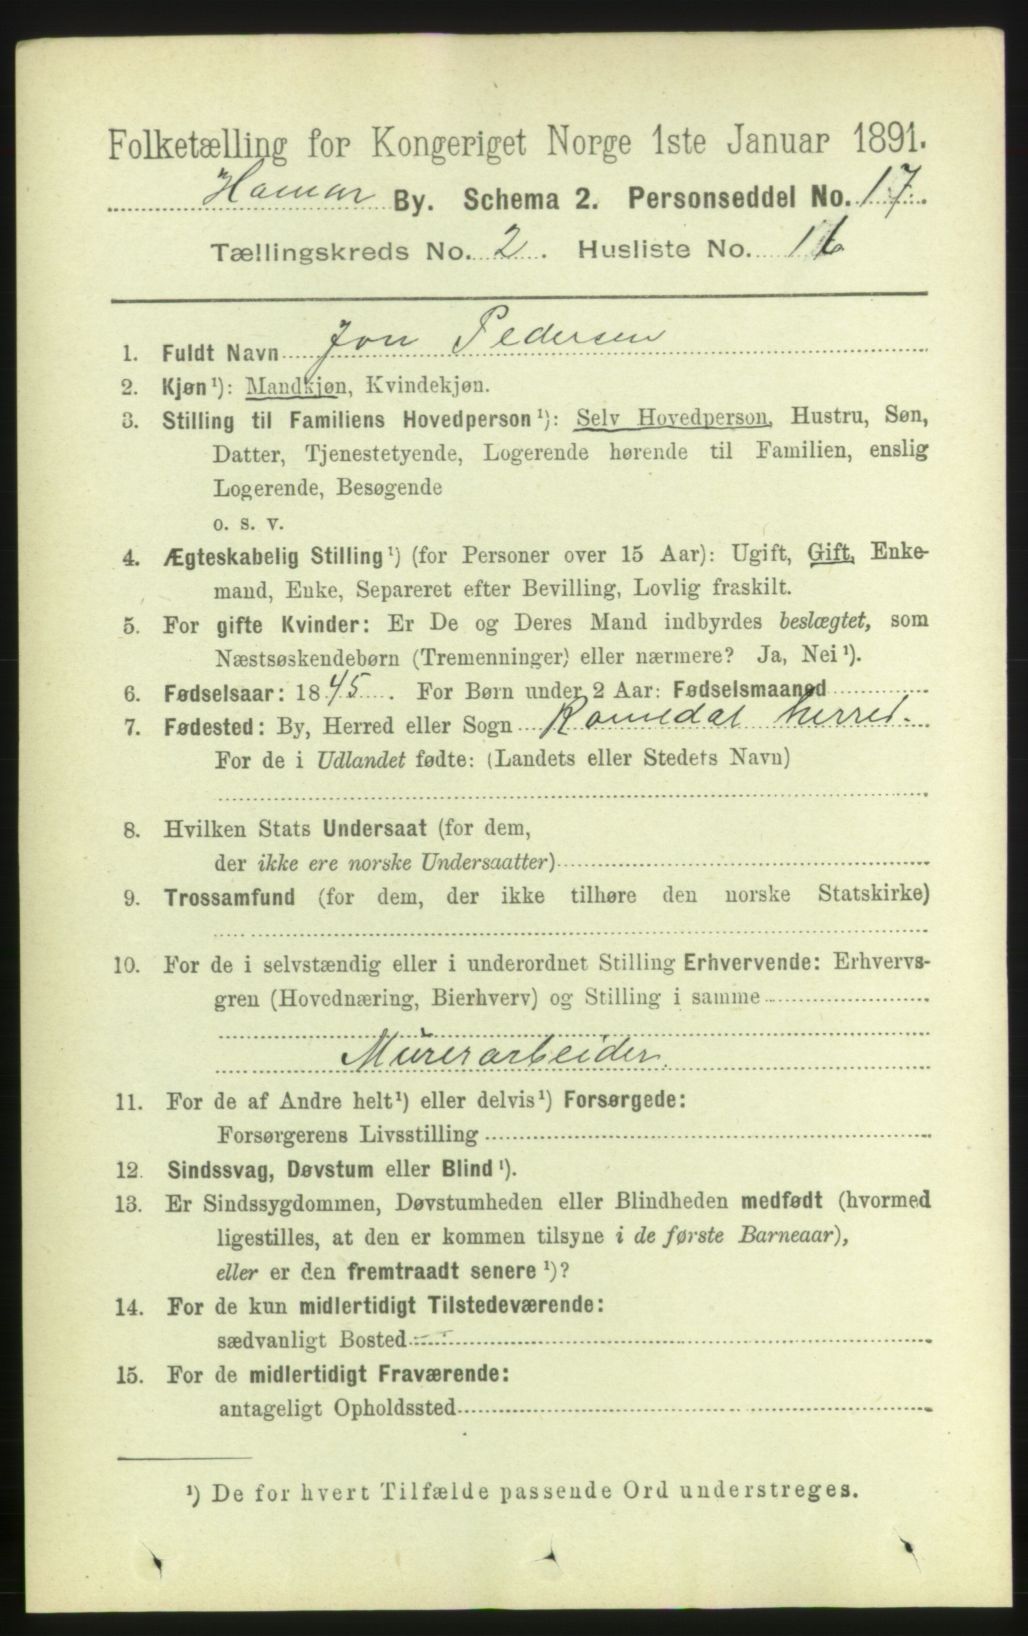 Folketælling for Kongeriget Norge 1ste Januar 1891.
Hamar By. Schema 2. Personseddel No. 17.
Tællingskreds No. 2. Husliste No.
1. Fuldt Navn Jon Pedersen
2. Kjøn¹): Mandkjøn, Kvindekjøn.
3. Stilling til Familiens Hovedperson¹): Selv Hovedperson, Hustru, Søn,
Datter, Tjenestetyende, Logerende hørende til Familien, enslig
Logerende, Besøgende
o. s. v.
4. Ægteskabelig Stilling¹) (for Personer over 15 Aar): Ugift, Gift, Enke-
mand, Enke, Separeret efter Bevilling, Lovlig fraskilt.
5. For gifte Kvinder: Er De og Deres Mand indbyrdes beslægtet, som
Næstsøskendebørn (Tremenninger) eller nærmere? Ja, Nei¹).
6. Fødselsaar: 1845. For Børn under 2 Aar: Fødselsmaaned
7. Fødested: By, Herred eller Sogn Romedal herred.
For de i Udlandet fødte: (Landets eller Stedets Navn)
8. Hvilken Stats Undersaat (for dem,
der ikke ere norske Undersaatter)
9. Trossamfund (for dem, der ikke tilhøre den norske Statskirke)
10. For de i selvstændig eller i underordnet Stilling Erhvervende: Erhvervs-
gren (Hovednæring, Bierhverv) og Stilling i samme
Murerarbeider.
11. For de af Andre helt¹) eller delvis¹) Forsørgede:
Forsørgerens Livsstilling
12. Sindssvag, Døvstum eller Blind¹).
13. Er Sindssygdommen, Døvstumheden eller Blindheden medfødt (hvormed
ligestilles, at den er kommen tilsyne i de første Barneaar),
eller er den fremtraadt senere¹)?
14. For de kun midlertidigt Tilstedeværende:
sædvanligt Bosted
15. For de midlertidigt Fraværende:
antageligt Opholdssted
¹) De for hvert Tilfælde passende Ord understreges.